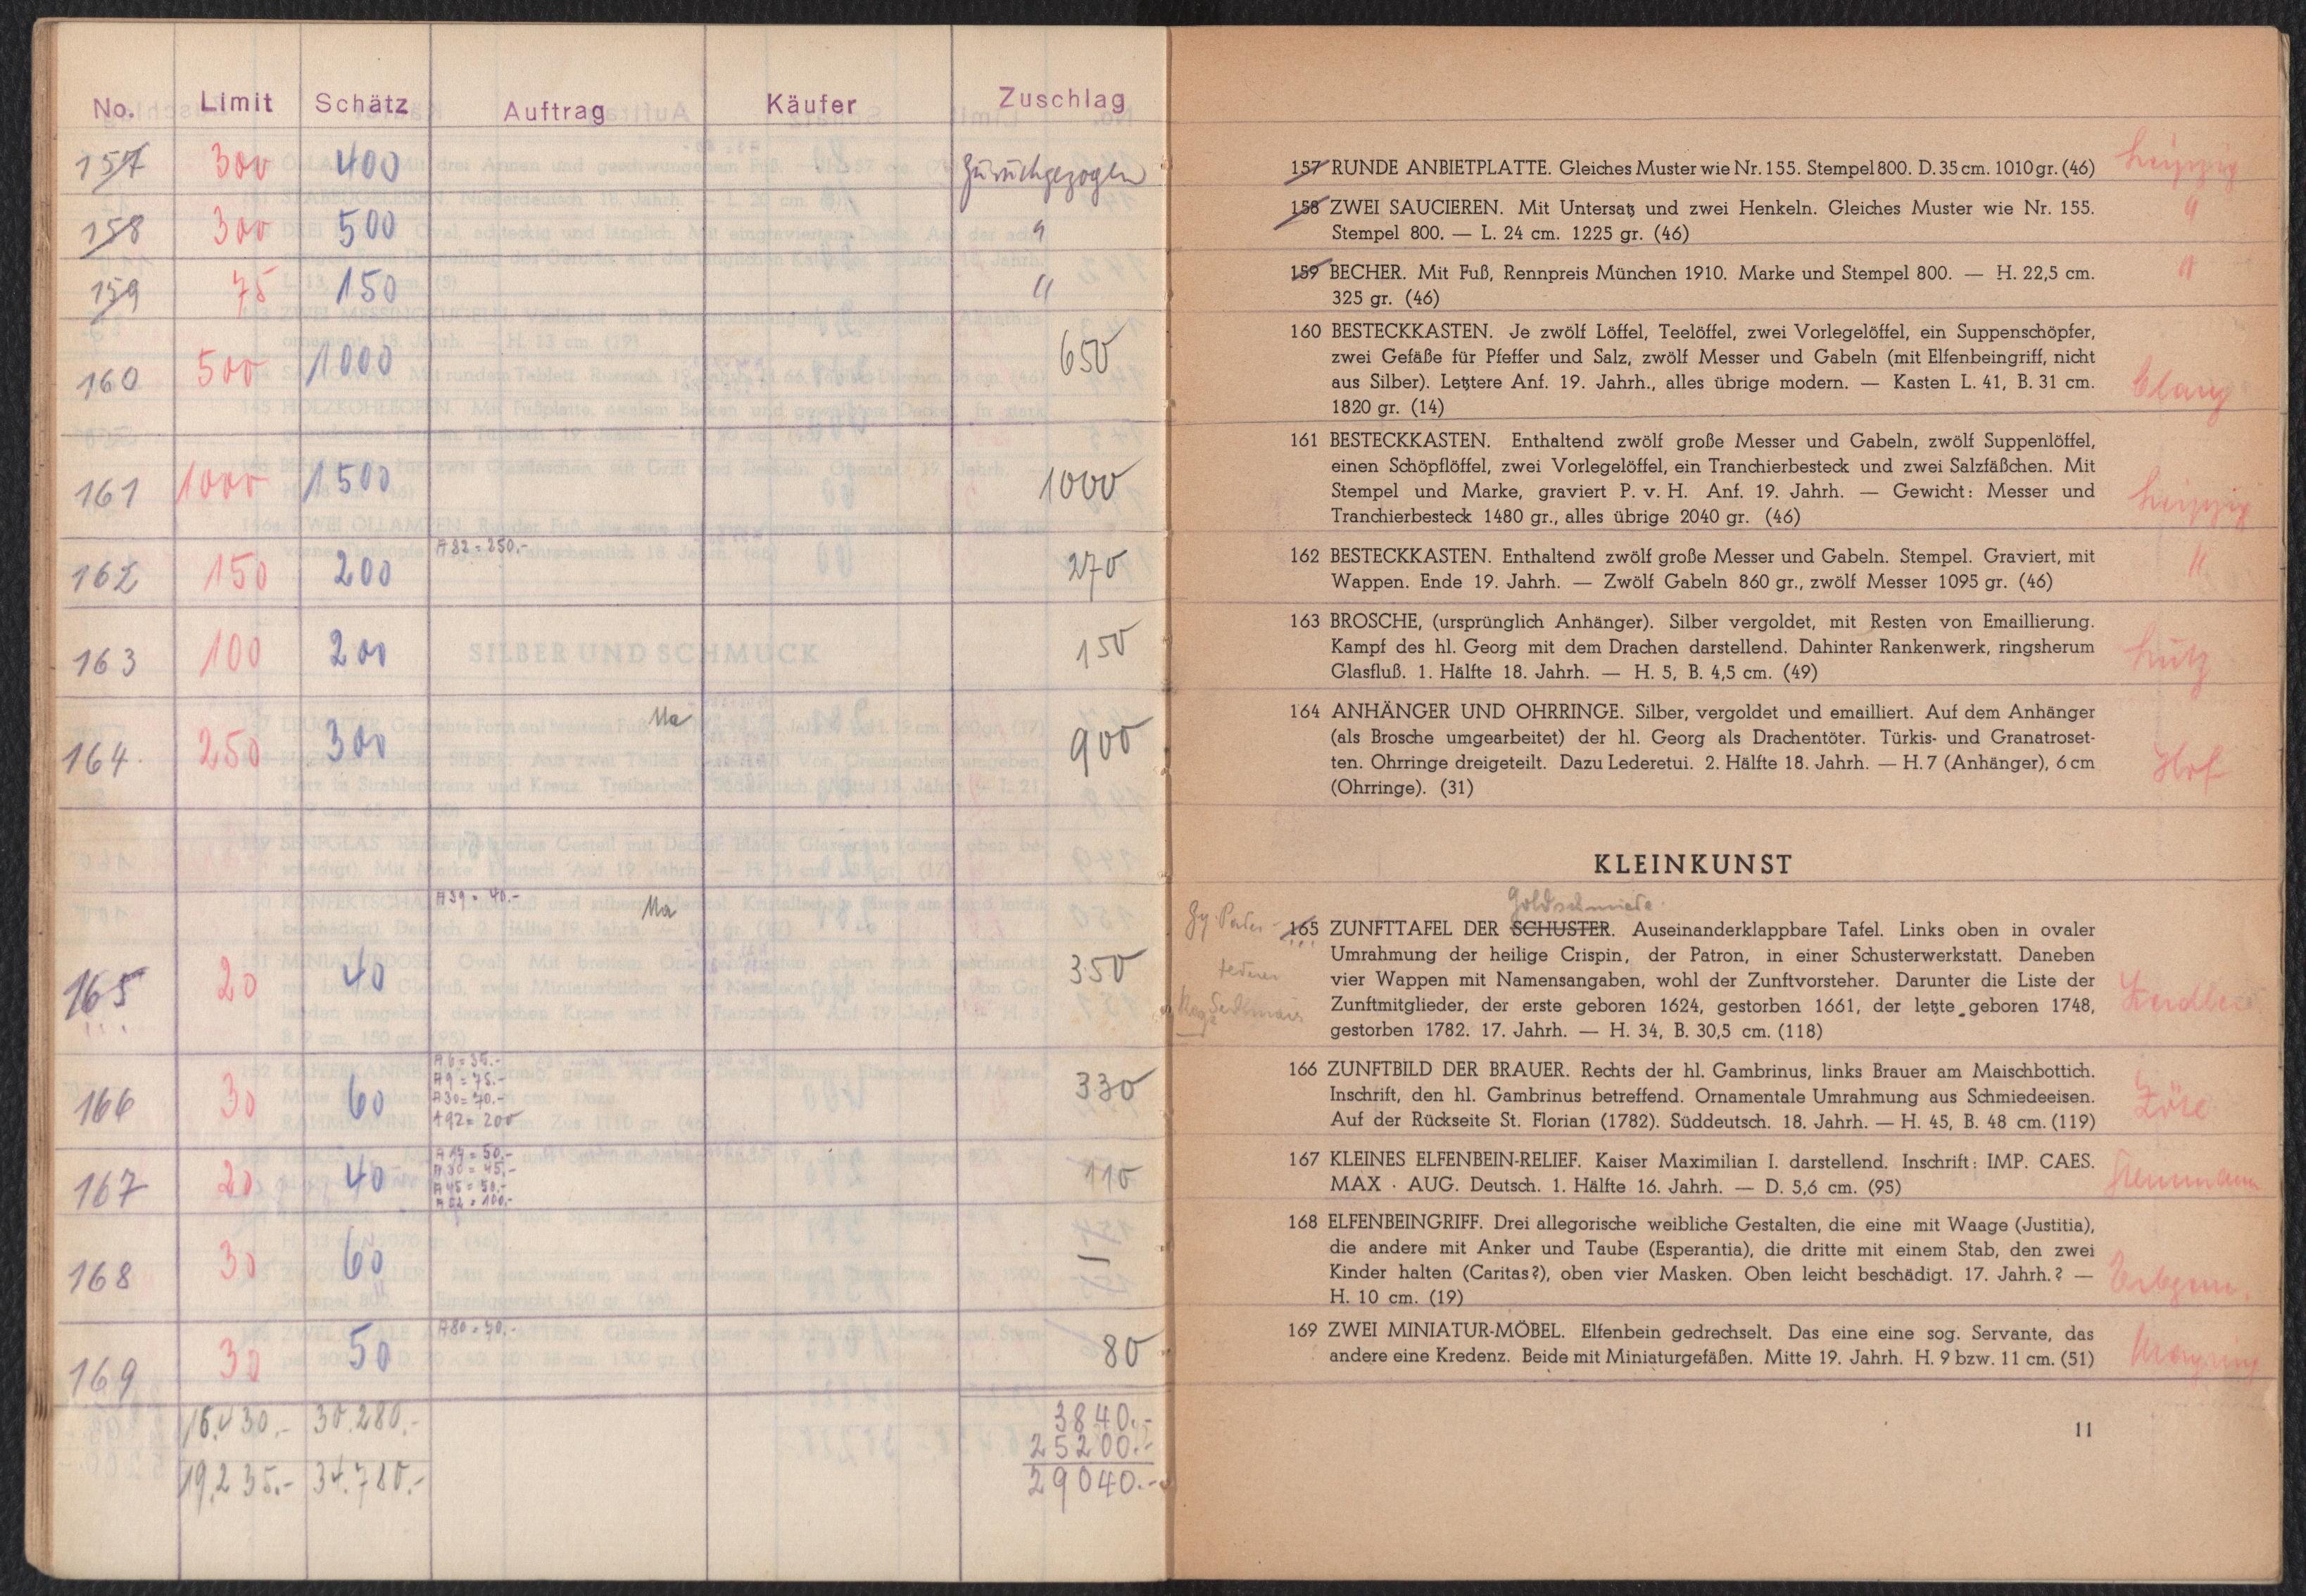 No. Limit Schätz Auftrag Käufer Zuschlag
157 300 400 Zurückgezogen
158 300 500 "
159 75 150 "
160 500 1000 650
161 1000 1500 1000
162 150 200 A 82 = 250.- 270
163 100 200 150
164 250 300 Ma 900
165 20 40 A 39 = 40.- Ma 350
166 30 60 330
A 6 = 35.-
A 9 = 75.-
A 30 = 70.-
192 = 200
167 20 40 110
A 19 = 50.-
A 30 = 45.-
A 45 = 50.-
A 52 = 100.-
168 30 60 –
169 30 50 A 80 = 50.- 80
16.430.- 30.280.- 3840.-
25200.-
19.235.- 34.780.- 29040.-
SILBER UND SCHMUCK
157 RUNDE ANBIETPLATTE. Gleiches Muster wie Nr. 155. Stempel 800. D. 35 cm. 1010 gr. (46) Leipzig
158 ZWEI SAUCIEREN. Mit Untersatz und zwei Henkeln. Gleiches Muster wie Nr. 155. "
Stempel 800. — L. 24 cm. 1225 gr. (46)
159 BECHER. Mit Fuß, Rennpreis München 1910. Marke und Stempel 800. — H. 22,5 cm. "
325 gr. (46)
160 BESTECKKASTEN. Je zwölf Löffel, Teelöffel, zwei Vorlegelöffel, ein Suppenschöpfer,
zwei Gefäße für Pfeffer und Salz, zwölf Messer und Gabeln (mit Elfenbeingriff, nicht
aus Silber). Letztere Anf. 19. Jahrh., alles übrige modern. — Kasten L. 41, B. 31 cm.
1820 gr. (14)
161 BESTECKKASTEN. Enthaltend zwölf große Messer und Gabeln, zwölf Suppenlöffel,
einen Schöpflöffel, zwei Vorlegelöffel, ein Tranchierbesteck und zwei Salzfäßchen. Mit
Stempel und Marke, graviert P. v. H. Anf. 19. Jahrh. — Gewicht: Messer und Leipzig
Tranchierbesteck 1480 gr., alles übrige 2040 gr. (46)
162 BESTECKKASTEN. Enthaltend zwölf große Messer und Gabeln. Stempel. Graviert, mit "
Wappen. Ende 19. Jahrh. — Zwölf Gabeln 860 gr., zwölf Messer 1095 gr. (46)
163 BROSCHE, (ursprünglich Anhänger). Silber vergoldet, mit Resten von Emaillierung.
Kampf des hl. Georg mit dem Drachen darstellend. Dahinter Rankenwerk, ringsherum Lutz
Glasfluß. 1. Hälfte 18. Jahrh. — H. 5, B. 4,5 cm. (49)
164 ANHÄNGER UND OHRRINGE. Silber, vergoldet und emailliert. Auf dem Anhänger
(als Brosche umgearbeitet) der hl. Georg als Drachentöter. Türkis- und Granatroset-
ten. Ohrringe dreigeteilt. Dazu Lederetui. 2. Hälfte 18. Jahrh. — H. 7 (Anhänger), 6 cm Hof
(Ohrringe). (31)
KLEINKUNST
Goldschmiede
165 ZUNFTTAFEL DER SCHUSTER. Auseinanderklappbare Tafel. Links oben in ovaler
Umrahmung der heilige Crispin, der Patron, in einer Schusterwerkstatt. Daneben
vier Wappen mit Namensangaben, wohl der Zunftvorsteher. Darunter die Liste der
Zunftmitglieder, der erste geboren 1624, gestorben 1661, der letzte geboren 1748,
gestorben 1782. 17. Jahrh. — H. 34, B. 30,5 cm. (118)
166 ZUNFTBILD DER BRAUER. Rechts der hl. Gambrinus, links Brauer am Maischbottich.
Inschrift, den hl. Gambrinus betreffend. Ornamentale Umrahmung aus Schmiedeeisen.
Auf der Rückseite St. Florian (1782). Süddeutsch. 18. Jahrh. — H. 45, B. 48 cm. (119)
167 KLEINES ELFENBEIN-RELIEF. Kaiser Maximilian I. darstellend. Inschrift: IMP. CAES.
MAX · AUG. Deutsch. 1. Hälfte 16. Jahrh. — D. 5,6 cm. (95)
168 ELFENBEINGRIFF. Drei allegorische weibliche Gestalten, die eine mit Waage (Justitia),
die andere mit Anker und Taube (Esperantia), die dritte mit einem Stab, den zwei
Kinder halten (Caritas?), oben vier Masken. Oben leicht beschädigt. 17. Jahrh.? —
H. 10 cm. (19)
169 ZWEI MINIATUR-MÖBEL. Elfenbein gedrechselt. Das eine eine sog. Servante, das
andere eine Kredenz. Beide mit Miniaturgefäßen. Mitte 19. Jahrh. H. 9 bzw. 11 cm. (51)
11